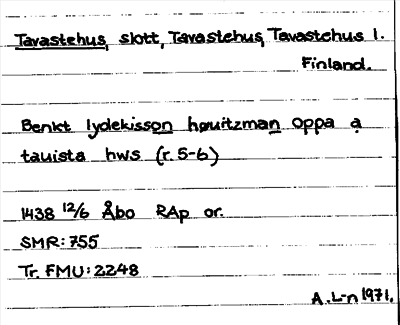 Tavastehus, slott, Tavastehus, Tavastehus l.
Finland.
Benkt lydekisson høuitzman oppa a
tauista hws (r. 5-6)
1438 12/6 Åbo RAp or.
SMR: 755
Tr. FMU: 2248
A. L-n 1971.